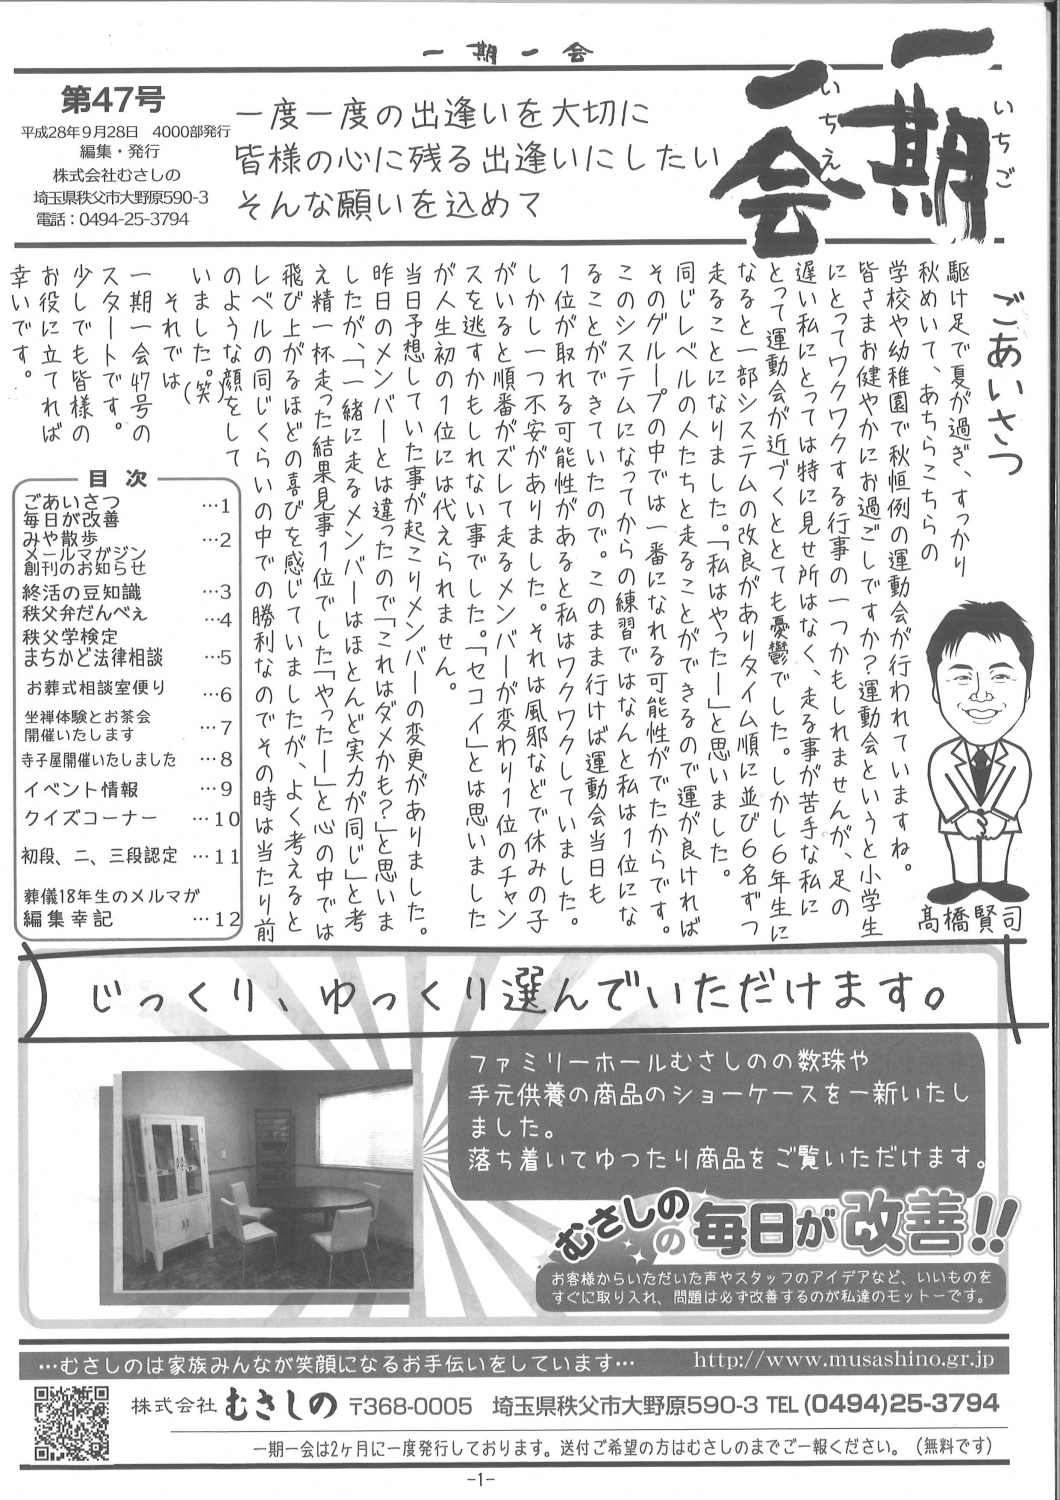 一期一会
一期一会
いちご
いちえ
第47号
平成28年9月28日　4000部発行
編集・発行
株式会社むさしの
埼玉県秩父市大野原590-3
電話：0494-25-3794
一度一度の出逢いを大切に
皆様の心に残る出逢いにしたい
そんな願いを込めて
ごあいさつ
駆け足で夏が過ぎ、すっかり
秋めいて、あちらこちらの
学校や幼稚園で秋恒例の運動会が行われていますね。
皆さまお健やかにお過ごしですか？運動会というと小学生
にとってワクワクする行事の一つかもしれませんが、足の
遅い私にとっては特に見せ所はなく、走る事が苦手な私に
とって運動会が近づくととても憂鬱でした。しかし6年生に
なると一部システムの改良がありタイム順に並び6名ずつ
走ることになりました。「私はやったー」と思いました。
同じレベルの人たちと走ることができるので運が良ければ
そのグループの中では一番になれる可能性がでたからです。
このシステムになってからの練習ではなんと私は1位にな
ることができていたので。このまま行けば運動会当日も
1位が取れる可能性があると私はワクワクしていました。
しかし一つ不安がありました。それは風邪などで休みの子
がいると順番がズレて走るメンバーが変わり1位のチャン
スを逃すかもしれない事でした。「セコイ」とは思いました
が人生初の1位には代えられません。
当日予想していた事が起こりメンバーの変更がありました。
昨日のメンバーとは違ったので「これはダメかも？」と思いま
したが、「一緒に走るメンバーはほとんど実力が同じ」と考
え精一杯走った結果見事1位でした「やったー」と心の中では
飛び上がるほどの喜びを感じていましたが、よく考えると
レベルの同じくらいの中での勝利なのでその時は当たり前
のような顔をして
いました。(笑)
それでは
一期一会47号の
スタートです。
少しでも皆様の
お役に立てれば
幸いです。
髙橋賢司
目　次
ごあいさつ　…1
毎日が改善
みや散歩　…2
メールマガジン
創刊のお知らせ
終活の豆知識　…3
秩父弁だんべぇ　…4
秩父学検定
まちかど法律相談　…5
お葬式相談室便り　…6
坐禅体験とお茶会
開催いたします　…7
寺子屋開催いたしました　…8
イベント情報　…9
クイズコーナー　…10
初段、二、三段認定　…11
葬儀18年生のメルマが
編集幸記　…12
じっくり、ゆっくり選んでいただけます。
ファミリーホールむさしのの数珠や
手元供養の商品のショーケースを一新いたし
ました。
落ち着いてゆったり商品をご覧いただけます。
むさしのの毎日が改善!!
お客様からいただいた声やスタッフのアイデアなど、いいものを
すぐに取り入れ、問題は必ず改善するのが私達のモットーです。
…むさしのは家族みんなが笑顔になるお手伝いをしています…　http://www.musashino.gr.jp
株式会社 むさしの 〒368-0005　埼玉県秩父市大野原590-3 TEL(0494)25-3794
一期一会は2ヶ月に一度発行しております。送付ご希望の方はむさしのまでご一報ください。（無料です）
-1-